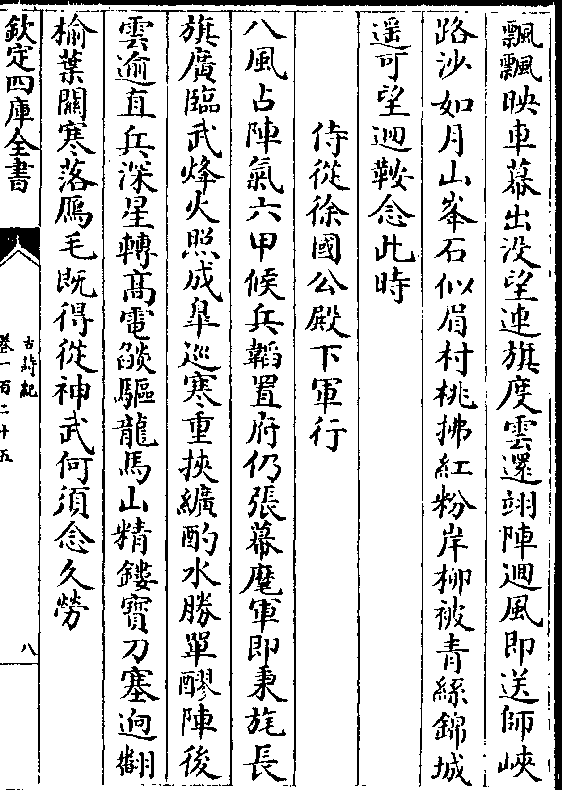 飄飄映車幕出没望連旗度雲還翊陣迴風即送師峽
路沙如月山峯石似眉村桃拂紅粉岸柳被青絲錦城
遥可望迴鞍念此時
侍從徐國公殿下軍行
八風占陣氣六甲候兵韜置府仍張幕麾軍即秉旄長
旗廣臨武烽火照成臯巡寒重挾纊酌水勝單醪陣後
雲逾直兵深星轉髙電燄驅龍馬山精鏤寶刀塞迥翻
榆葉關寒落鴈毛既得從神武何須念久勞
欽定四庫全書
古詩紀
卷一百二十五
八